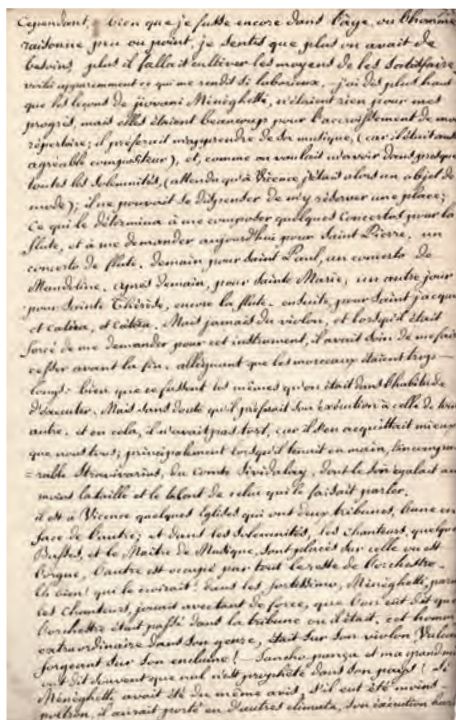 Cependant, bien que je fusse encore dans l'âge, ou l'homme
raisonne peu ou point, je sentis que plus on avait de
besoins plus il fallait cultiver les moyens de les satisfaire,
voilà apparemment ce qui me rendit si laborieux. j'ai dit plus haut
que les leçons de jiovani Ménéghetti, n'étaient rien pour mes
progrès, mais elles étaient beaucoup pour l'accroissement de mon
répertoire; il préferait m'apprendre de sa musique, (car il était aussi
agréable compositeur), et, comme on voulait m'avoir dans presque
toutes les solemnités, (attendu qu'à Vicence j'étais alors un objet de
mode); il ne pouvait se dispenser de m'y réserver une place;
ce qui le détermina à me composer quelques Concertos pour la
flute, et à me demander aujourd'hui pour Saint Pierre, un
concerto de flute. demain pour Saint Paul, un concerto de
Mandoline. après demain, pour Sainte Marie; un autre jour
pour Sainte Thérèse, encore la flute. ensuite, pour Saint jacques
et cætera, et cætera. Mais jamais du violon, et lorsqu'il était
forcé de me demander pour cet instrument, il avait soin de me faire
cesser avant la fin. alléguant que les morceaux étaient trop
longs. bien que ce fussent les mêmes qu'on était dans l'habitude
d'éxecuter. Mais sans doute qu'il préferait son éxécution à celle de tout
autre. et en cela, il n'avait pas tort, car il s'en acquittait mieux
que nous tous; principalement lorsqu'il tenait en main, l'incompa-
=rable Stradivarius, du Comte dont le son égalait au
moins la taille et le talent de celui qui le faisait parler.
il est à Vicence quelques églises qui ont deux tribunes, l'une en
face de l'autre; et dans les solemnités, les chanteurs, quelques
Basses, et le Maître de Musique, sont placés sur celle ou est
l'orgue, l'autre est occupé par tout le reste de l'orchestre.
Eh bien! qui le croirait! dans les fortissimo, Ménéghetti, parmi
les chanteurs, jouait avec tant de force, que l'on eut dit que
l'orchestre était passé dans la tribune ou il était, cet homme
extraordinaire dans son genre, était sur son violon, Vulcain
forgeant sur son enclume! Sancho-pança et ma grand mère
ont dit souvent que nul n'est prophète dans son pays! Si
Ménéghetti avait été du même avis, s'il eut été moins
poltron, il aurait porté en d'autres climats, son éxécution